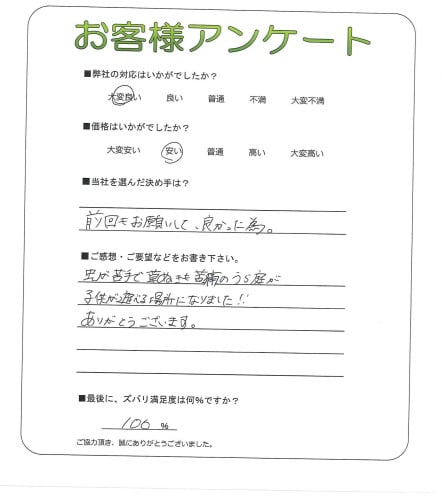 お客様アンケート
■弊社の対応はいかがでしたか？
大変良い 良い 普通 不満 大変不満
■価格はいかがでしたか？
大変安い 安い 普通 高い 大変高い
■当社を選んだ決め手は？
前回もお願いして、良かった為。
■ご感想・ご要望などをお書き下さい。
虫が苦手で草ぬきも苦痛のうら庭が
子供が遊べる場所になりました!!
ありがとうございます。
■最後に、ズバリ満足度は何％ですか？
100 %
ご協力頂き、誠にありがとうございました。